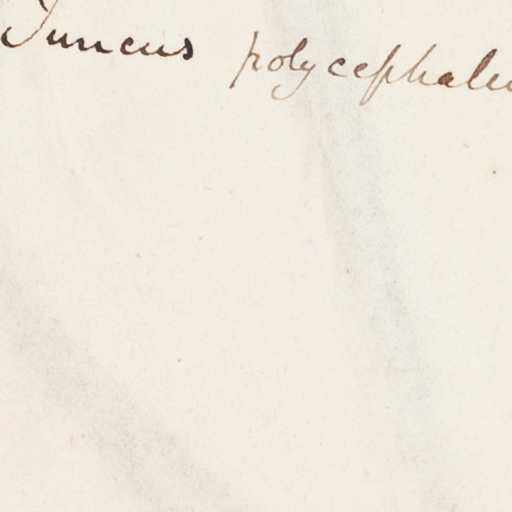 Juncus polycephalu